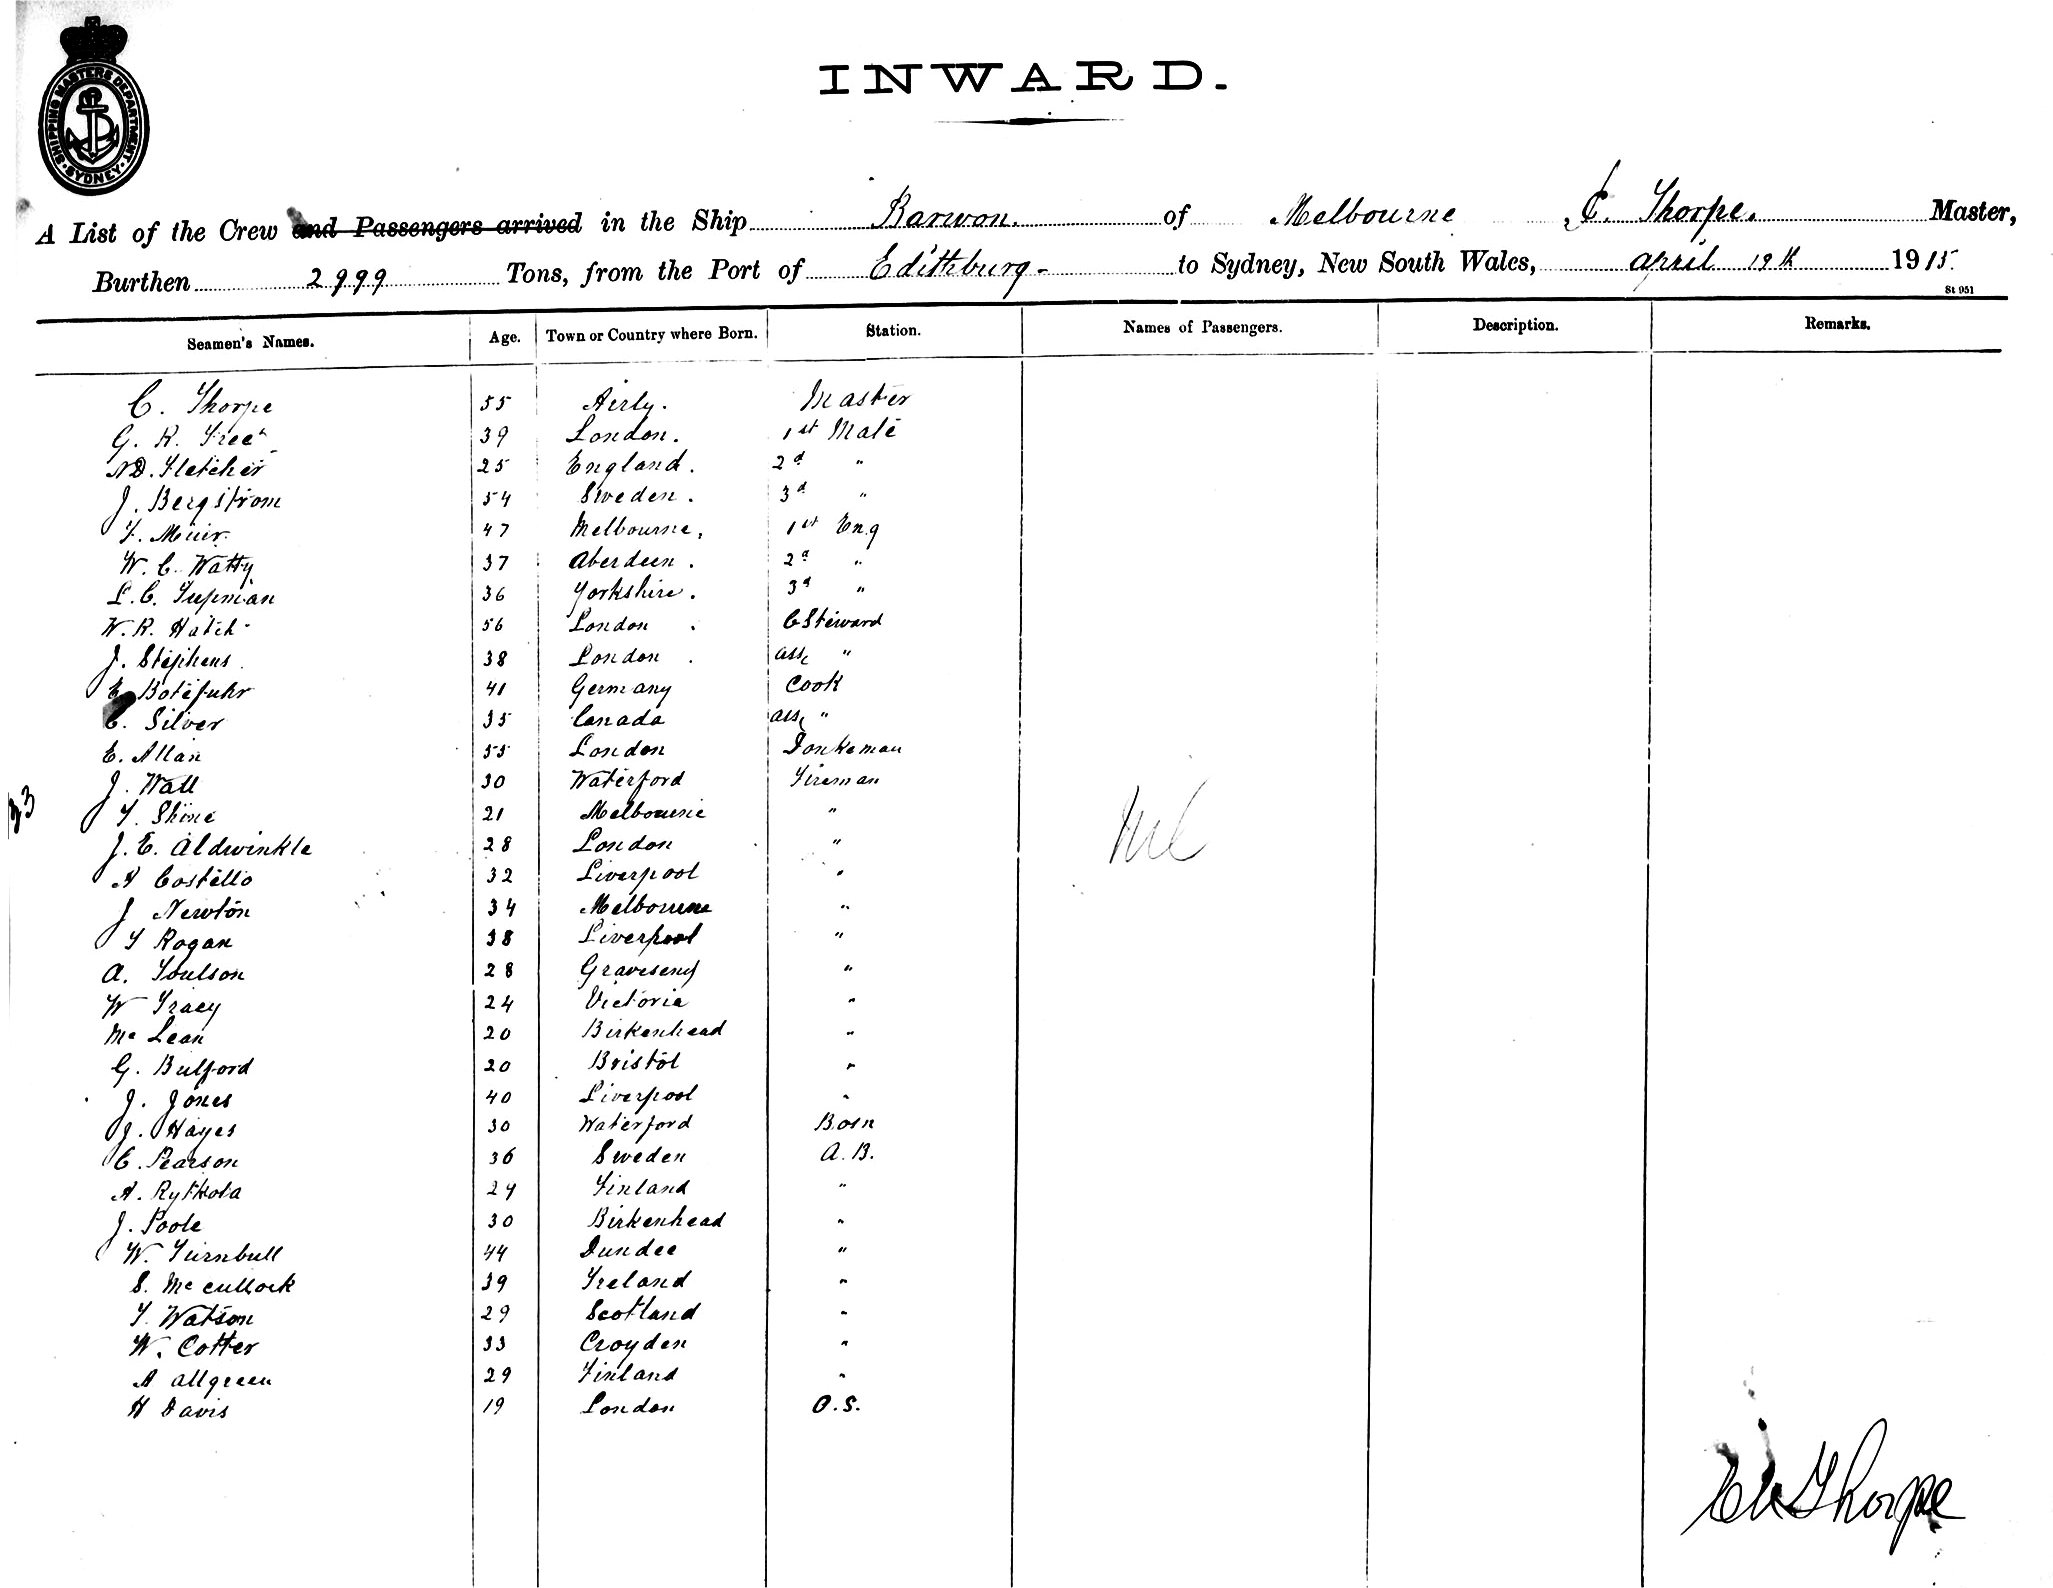 SHIPPING MASTERS DEPARTMENT · SYDNEY ·
INWARD.
A List of the Crew and Passengers arrived in the Ship Barwon. of Melbourne C. Thorpe. Master,
Burthen 2999 Tons, from the Port of Edithburg - to Sydney, New South Wales, April 19th 1915.
St 951
Seamen's Names. Age. Town or Country where Born. Station. Names of Passengers. Description. Remarks.
C. Thorpe 55 Airly. Master
G. R. Free 39 London. 1st Mate
N.D. Fletcher 25 England. 2d "
J. Bergstrom 54 Sweden. 3d "
F. Muir 47 Melbourne, 1st Eng
W. C. Watty 37 Aberdeen. 2d "
L. C. Tupman 36 Yorkshire. 3d "
W. R. Hatch 56 London. C Steward
J. Stephens. 38 London. "
E. Botefuhr 41 Germany Cook
C. Silver 35 Canada "
E. Allan 55 London Donkeman
J. Wall 30 Waterford Fireman
23
T. Shine 21 Melbourne "
J. E. Aldwinkle 28 London "
A Costello 32 Liverpool "
J Newton 34 Melbourne "
T Rogan 38 Liverpool "
A. Toulson 28 Gravesend "
W Tracy 24 Victoria "
Mc Lean 20 Birkenhead "
G. Bulford 20 Bristol "
J. Jones 40 Liverpool "
J. Hayes 30 Waterford Bosn
C. Pearson 36 Sweden A.B.
A. Rytkola 24 Finland "
J. Poole 30 Birkenhead "
W. Turnbull 44 Dundee "
S. Mc cullock 39 Ireland "
T. Watson 29 Scotland "
W. Cotter 33 Croyden "
A allgreen 29 Finland "
H Davis 19 London O.S.
Nil
Thorpe